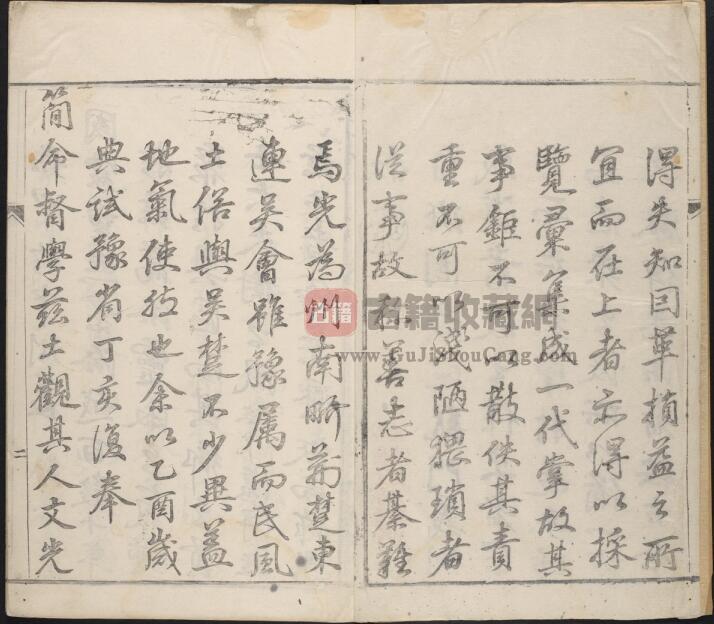 得失知因革損益之所
宜而在上者亦得以採
覽彙集成一代掌故其
事鉅不可以散佚其責
重不可以淺陋猥瑣者
從事故稱善志者綦難
焉光為州南畍荊楚東
連吳會雖豫属而民風
土俗與吳楚不少異蓋
地氣使然也余以乙酉歲
典試豫省丁亥復奉
簡命督學茲土觀其人文光
二
古籍
古籍收藏網
www.GuJiShouCang.com